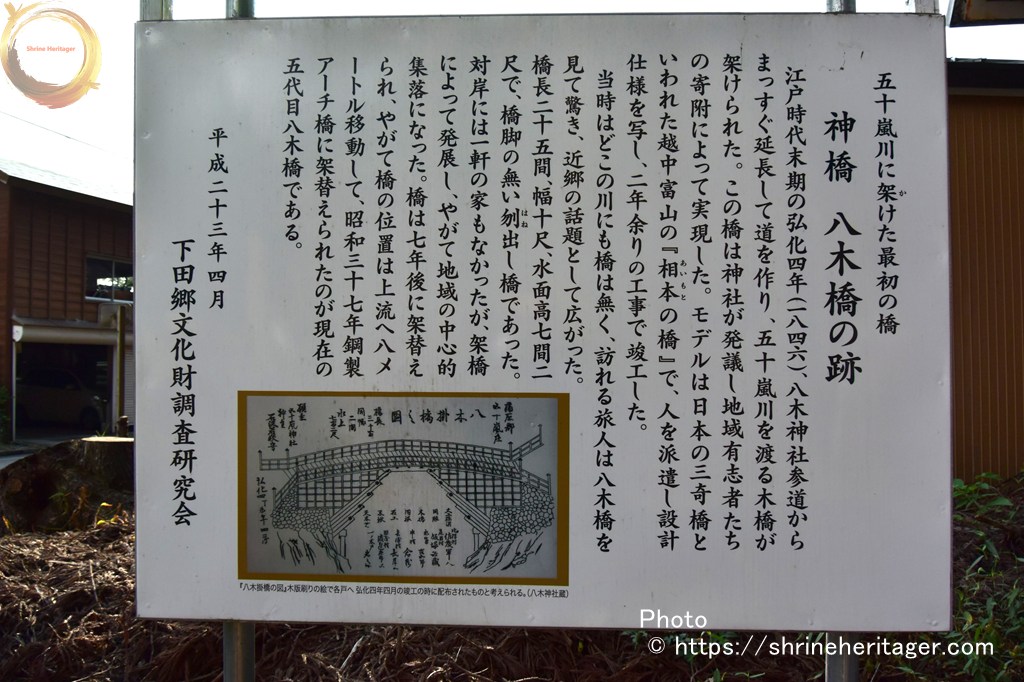 Shrine Heritager
五十嵐川に架けた最初の橋
神橋 八木橋の跡
江戸時代末期の弘化四年(一八四六)、八木神社参道から
まっすぐ延長して道を作り、五十嵐川を渡る木橋が
架けられた。この橋は神社が発議し地域有志者たち
の寄附によって実現した。モデルは日本の三奇橋と
いわれた越中富山の『相本の橋』で、人を派遣し設計
仕様を写し、二年余りの工事で竣工した。
当時はどこの川にも橋は無く、訪れる旅人は八木橋を
見て驚き、近郷の話題として広がった。
橋長二十五間、幅十尺、水面高七間二
尺で、橋脚の無い刎出し橋であった。
対岸には一軒の家もなかったが、架橋
によって発展し、やがて地域の中心的
集落になった。橋は七年後に架替え
られ、やがて橋の位置は上流へ八メ
ートル移動して、昭和三十七年鋼製
アーチ橋に架替えられたのが現在の
五代目八木橋である。
平成二十三年四月
下田郷文化財調査研究会
八木掛橋之図
『八木掛橋の図』木版刷りの絵で各戸へ 弘化四年四月の竣工の時に配布されたものと考えられる。(八木神社蔵)
Photo
© https://shrineheritager.com